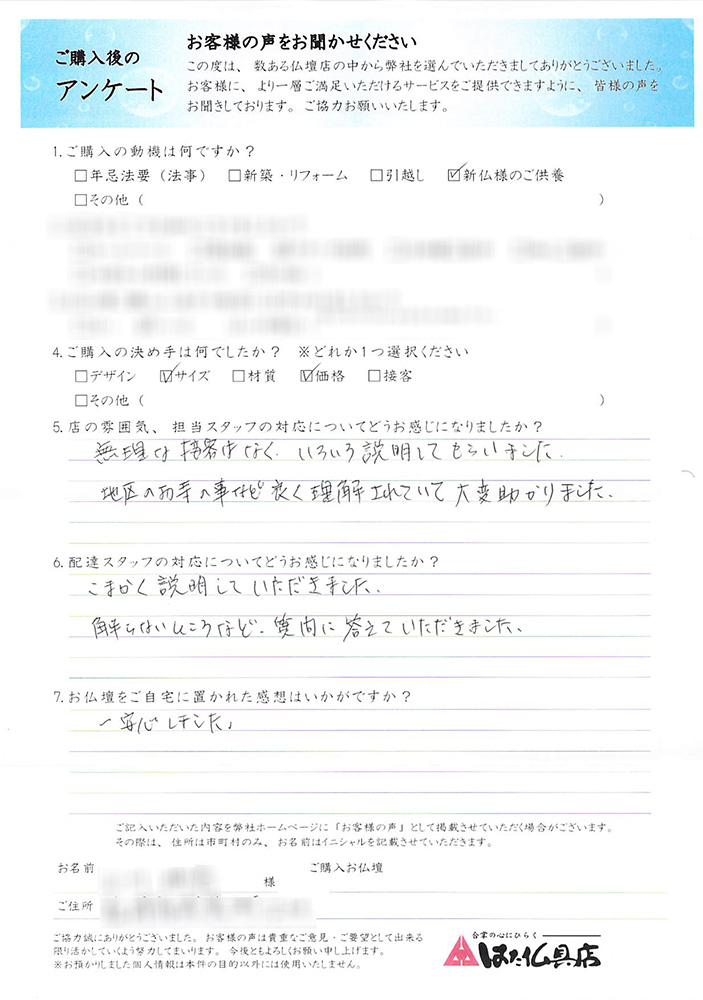 ご購入後の
アンケート
お客様の声をお聞かせください
この度は、数ある仏壇店の中から弊社を選んでいただきましてありがとうございました。
お客様に、より一層ご満足いただけるサービスをご提供できますように、皆様の声を
お聞きしております。ご協力お願いいたします。
1.ご購入の動機は何ですか？
□年忌法要（法事） □新築・リフォーム □引越し ☑新仏様のご供養
□その他（ ）
4.ご購入の決め手は何でしたか？ ※どれか1つ選択ください
□デザイン ☑サイズ □材質 ☑価格 □接客
□その他（ ）
5.店の雰囲気、担当スタッフの対応についてどうお感じになりましたか？
無理な接客はなく、いろいろ説明してもらいました。
地区のお寺の事など良く理解されていて大変助かりました。
6.配達スタッフの対応についてどうお感じになりましたか？
こまかく説明していただきました。
解らないところなど、質問に答えていただきました。
7.お仏壇をご自宅に置かれた感想はいかがですか？
一安心しました。
ご記入いただいた内容を弊社ホームページに「お客様の声」として掲載させていただく場合がございます。
その際は、住所は市町村のみ、お名前はイニシャルを記載させていただきます。
お名前 様 ご購入お仏壇
ご住所
ご協力誠にありがとうございました。お客様の声は貴重なご意見・ご要望として出来る
限り活かしていくよう努力してまいります。今後ともよろしくお願い申し上げます。
※お預かりしました個人情報は本件の目的以外には使用いたしません。
合掌の心にひらく
はた仏具店